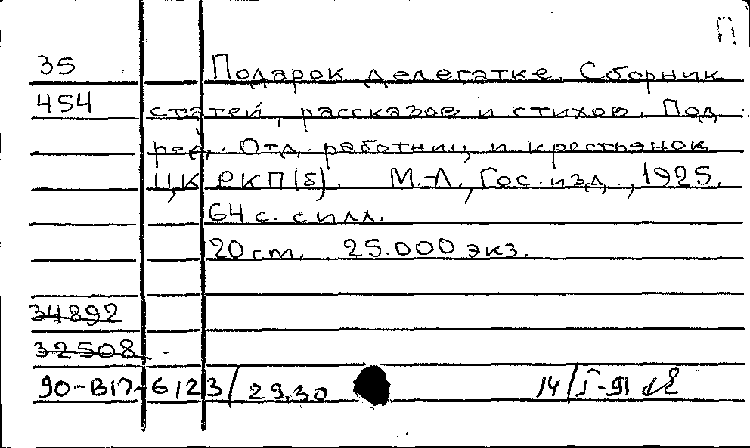 П
35 Подарок делегатке. Сборник
454 статей, рассказов и стихов. Под
ред. Отд. работниц и крестьянок
ЦК РКП(б). М.-Л., Гос. изд., 1925.
64 с. с илл.
20 ст. 25.000 экз.
34892
32508
90-В17-6123/29,30 14/I-91